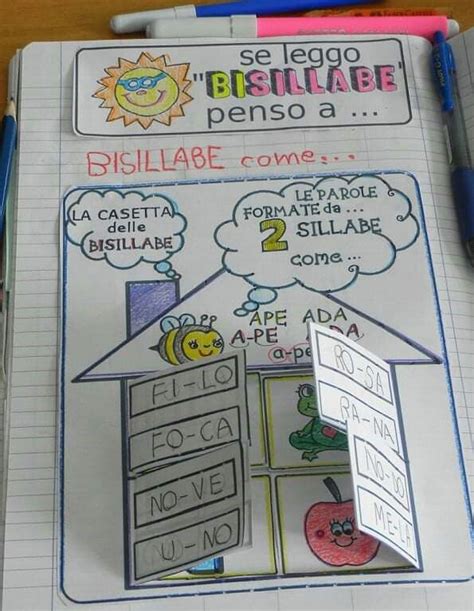 se leggo
"BISILLABE"
penso a ...
BISILLABE come...
LA CASETTA
delle
BISILLABE
LE PAROLE
FORMATE da ...
2 SILLABE
come ...
APE ADA
A-PE
a-pe
FI-LO
FO-CA
NO-VE
U-NO
RO-SA
RA-NA
NO-DO
ME-LA